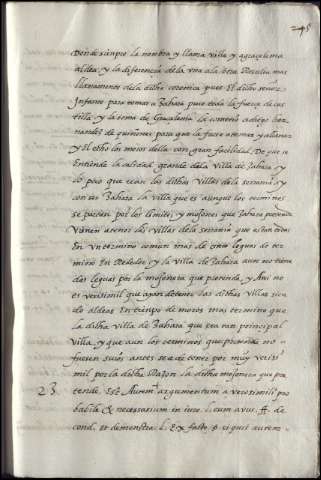 Donde siempre la nombra y llama villa y agraçalema
aldea, y la diferencia de la vna a la otra
llanamente de la dicha coronica pues El dicho señor
Infante para tomar a Zahara puso toda la fuerça de cas
tilla, y la toma de Graçalema la cometio a diego her
nandez de quiñones para que la fuese a tomar y allanar
y El ethº los moros della con gran facilidad. De que se
Entiende la calidad grande de la villa de Zahara / y
lo poco que eran las dichas villas de la serrania / y
con ser Zahara la villa que es aunque los terminos
se partan por los limites y mojones que Zahara pretende
Vienen a tener las villas de la serrania que estan todas
En vn termino comun mas de leguas de ter
mino En Rededor / y la villa de Zahara aun no tiene
dos leguas por la mojonera que pretende, y Ansi no
es verisimil que ayan de tener las dichas villas sien
do aldeas En tienpo de moros mas termino que
la dicha villa de Zahara que era tan principal
villa, y que aun los terminos que pretende no
fuesen suyos antes se a de tener por muy verisi
mil por la dicha Razon la dicha mojonera que pre
23. tende, Est Autem argumentum a verosimili pro
babile & necessarium in iure. l. cum auus, ff. de
cond. et demonstra. l. Ex facto. § si quis autem.